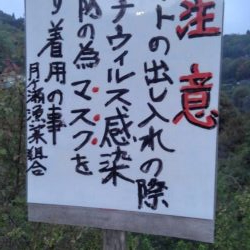 注意
トの出し入れの際
ナウィルス感染
防の為マスクを
ず着用の事
月ヶ瀬漁業組合